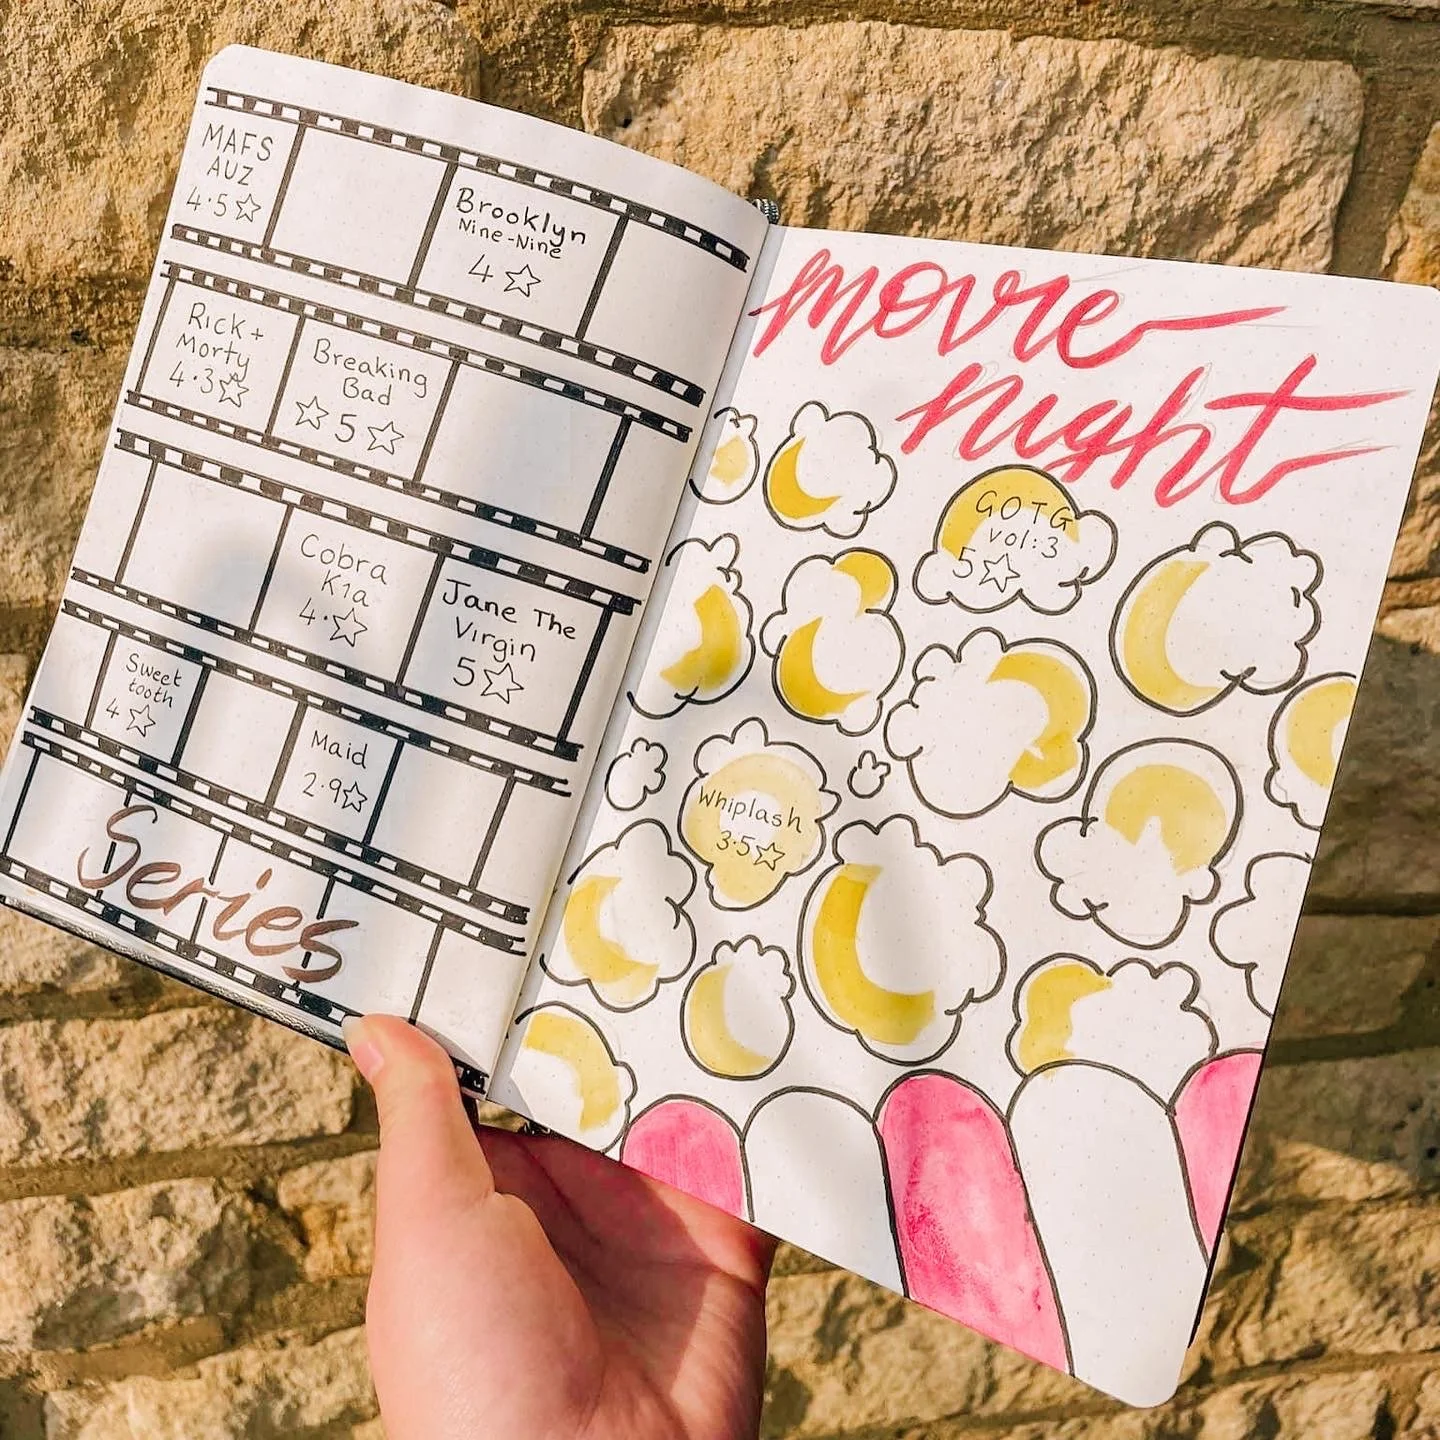 MAFS
AUZ
4.5☆
Brooklyn
Nine-Nine
4☆
Rick +
Morty
4.3☆
Breaking
Bad
☆5☆
Cobra
Kia
4.☆
Jane The
Virgin
5☆
Sweet
tooth
4☆
Maid
2.9☆
Series
movie
night
GOTG
vol:3
5☆
Whiplash
3.5☆